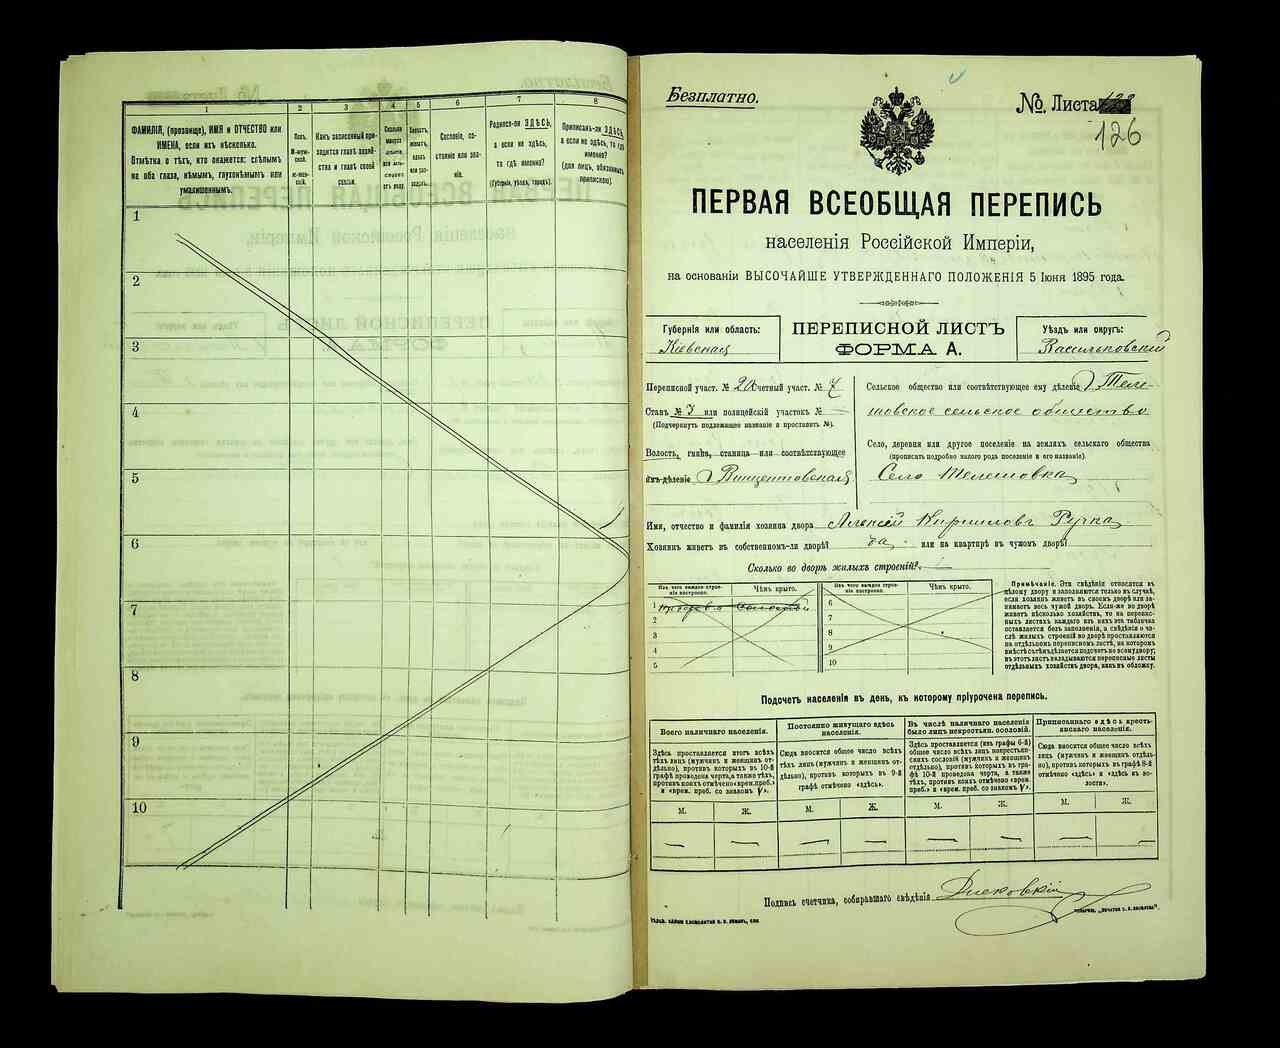 1
2
3
4
5
6
7
8
ФАМИЛІЯ, (прозвище), ИМЯ и ОТЧЕСТВО или
ИМЕНА, если ихъ нѣсколько.
Отмѣтка о тѣхъ, кто окажется: слѣпымъ
на оба глаза, нѣмымъ, глухонѣмымъ или
умалишеннымъ.
Полъ.
М-муж-
ской.
Ж-жен-
скій.
Какъ записанный при-
ходится главѣ хозяй-
ства и главѣ своей
семьи.
Сколько
минуло
лѣтъ
или мѣ-
сяцевъ
отъ роду.
Холостъ,
женатъ,
вдовъ
или раз-
веденъ.
Сословіе, со-
стояніе или зва-
ніе.
Родился-ли ЗДѢСЬ,
а если не здѣсь,
то гдѣ именно?
(Губернія, уѣздъ, городъ).
Приписанъ-ли ЗДѢСЬ,
а если не здѣсь, то гдѣ
именно?
(для лицъ, обязанныхъ
припискою).
1
2
3
4
5
6
7
8
9
10
Безплатно.
№ Листа
126
ПЕРВАЯ ВСЕОБЩАЯ ПЕРЕПИСЬ
населенія Россійской Имперіи,
на основаніи ВЫСОЧАЙШЕ УТВЕРЖДЕННАГО ПОЛОЖЕНІЯ 5 Іюня 1895 года.
Губернія или область:
Кіевская
ПЕРЕПИСНОЙ ЛИСТЪ
ФОРМА А.
Уѣздъ или округъ:
Васильковскій
Переписной участ. № 2 Счетный участ. № 7
Станъ № 3 или полицейскій участокъ №
(Подчеркнуть подлежащее названіе и проставить №).
Волость, гмина, станица или соотвѣтствующее
имъ дѣленіе Винцентовская
Сельское общество или соотвѣтствующее ему дѣленіе Теле-
шовское сельское общество
Село, деревня или другое поселеніе на земляхъ сельскаго общества
(прописать подробно малаго рода поселеніе и его названіе).
Село Телешовка
Имя, отчество и фамилія хозяина двора Алексій Кириловъ Ручка
Хозяинъ живетъ въ собственномъ-ли дворѣ? да или на квартирѣ въ чужомъ дворѣ?
Сколько во дворѣ жилыхъ строеній?
Изъ чего каждое строе-
ніе построено.
Чѣмъ крыто.
Изъ чего каждое строе-
ніе построено.
Чѣмъ крыто.
1 Соломой
2
3
4
5
6
7
8
9
10
Примѣчаніе. Эти свѣдѣнія относятся къ
цѣлому двору и заполняются только въ случаѣ,
если хозяинъ живетъ въ своемъ дворѣ или за-
нимаетъ весь чужой дворъ. Если-же во дворѣ
живетъ нѣсколько хозяйствъ, то на перепис-
ныхъ листахъ каждаго изъ нихъ эта табличка
оставляется безъ заполненія, а свѣдѣнія о чи-
слѣ жилыхъ строеній во дворѣ проставляются
на отдѣльномъ переписномъ листѣ, на которомъ
вмѣстѣ съ тѣмъ дѣлается подсчетъ по всему двору;
въ этотъ листъ вкладываются переписные листы
отдѣльныхъ хозяйствъ двора, какъ въ обложку.
Подсчетъ населенія въ день, къ которому пріурочена перепись.
Всего наличнаго населенія.
Здѣсь проставляется итогъ всѣхъ
тѣхъ лицъ (мужчинъ и женщинъ от-
дѣльно), противъ которыхъ въ 10-й
графѣ проведена черта, а также тѣхъ,
противъ коихъ отмѣчено «врем. преб.»
и «врем. преб. со знакомъ V».
М.
Ж.
Постоянно живущаго здѣсь
населенія.
Сюда вносится общее число всѣхъ
тѣхъ лицъ (мужчинъ и женщинъ от-
дѣльно), противъ которыхъ въ 9-й
графѣ отмѣчено «здѣсь».
М.
Ж.
Въ числѣ наличнаго населенія
было лицъ некрестьян. сословій.
Здѣсь проставляется (изъ графы 6-й)
общее число всѣхъ лицъ некрестьян-
скихъ сословій (мужчинъ и женщинъ
отдѣльно), противъ которыхъ въ гра-
фѣ 10-й проведена черта, а также
тѣхъ, противъ коихъ отмѣчено «врем.
преб.» и «врем. преб. со знакомъ V».
М.
Ж.
Приписаннаго здѣсь кресть-
янскаго населенія.
Сюда вносится общее число всѣхъ
лицъ (мужчинъ и женщинъ отдѣль-
но), противъ которыхъ въ графѣ 8-й
отмѣчено «здѣсь» и «здѣсь въ во-
лости».
М.
Ж.
Подпись счетчика, собиравшаго свѣдѣнія